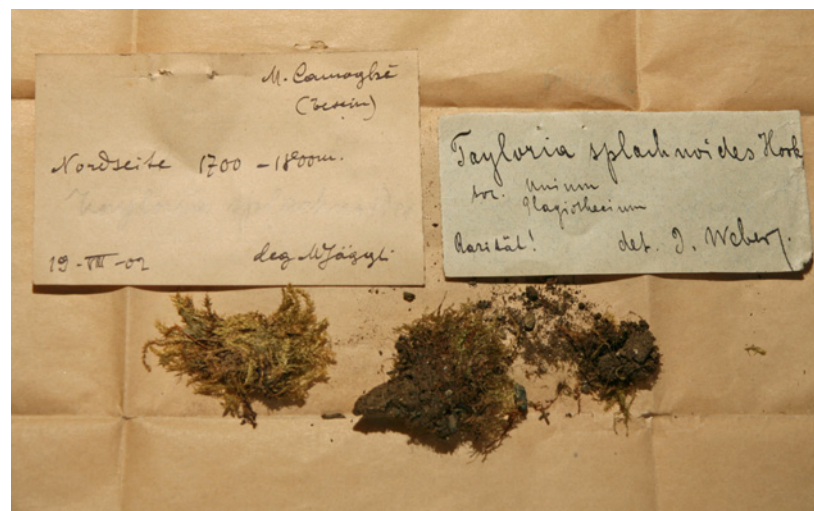 M. Camoghè
(Tessin)
Nordseite 1700 - 1800m.
19 - VIII - 02
leg. M Jäggli
Tayloria splachnoides Hook
soc. Mnium
Plagiothecium
Rarität!
det. J. Weber